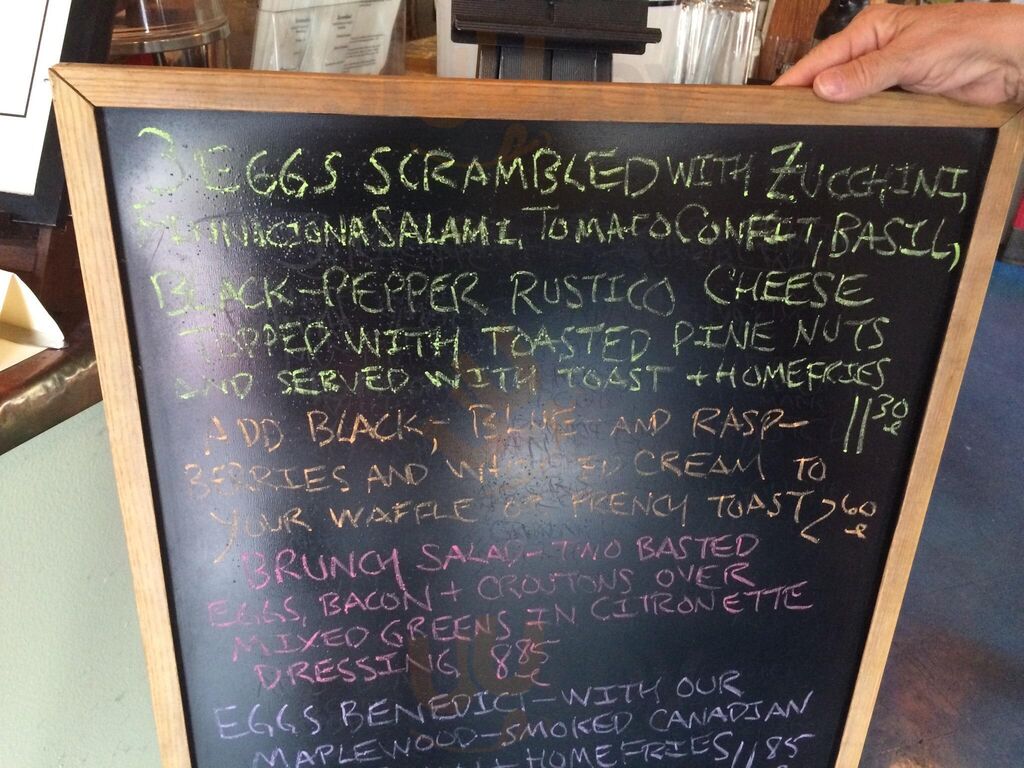 3 EGGS SCRAMBLED WITH ZUCCHINI,
SALAMI, TOMATO CONFIT, BASIL,
BLACK-PEPPER RUSTICO CHEESE
TOPPED WITH TOASTED PINE NUTS
AND SERVED WITH TOAST + HOMEFRIES
11 30
ADD BLACK-, BLUE AND RASP-
BERRIES AND WHIPPED CREAM TO
YOUR WAFFLE OR FRENCH TOAST 2 60
BRUNCH SALAD-TWO BASTED
EGGS, BACON + CROUTONS OVER
MIXED GREENS IN CITRONETTE
DRESSING 8 85
EGGS BENEDICT-WITH OUR
MAPLEWOOD-SMOKED CANADIAN
+ HOMEFRIES 11 85